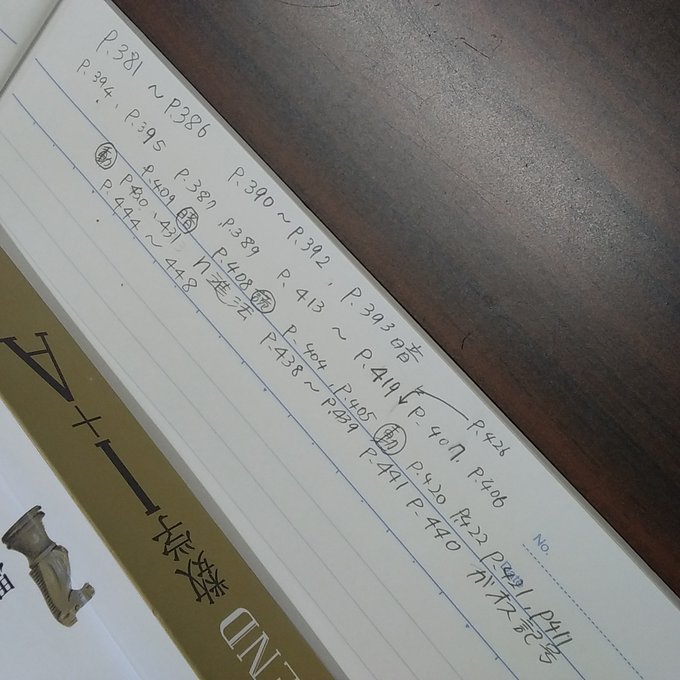 P.381 ~ P.386 P.390 ~ P.392, P.393 暗 P.426
P.394, P.395 P.387 P.389 P.413 ~ P.419 P.407, P.406
動 P.409 暗 P.408 P.404, P.405 動 P.420 P.422 P.421, P.411
P.430, 431 n進法 P.438 ~ P.439 P.441 P.440 ガウス記号
P.444 ~ 448
No.
数学I+A
END